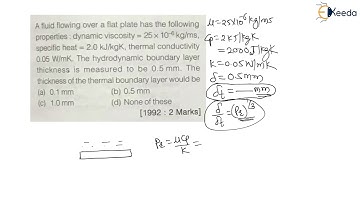 Ekeeda
A fluid flowing over a flat plate has the following
properties : dynamic viscosity = 25 × 10⁻⁶ kg/ms,
specific heat = 2.0 kJ/kgK, thermal conductivity
0.05 W/mK. The hydrodynamic boundary layer
thickness is measured to be 0.5 mm. The
thickness of the thermal boundary layer would be
(a) 0.1 mm (b) 0.5 mm
(c) 1.0 mm (d) None of these
[1992 : 2 Marks]
μ=25×10⁻⁶ kg/ms
Cp=2kJ/kgK
=2000J/kgK
K=0.05W/mK
δ=0.5mm
δt=—— mm
δ/δt=Pr^1/3
Pr=μCp/K=